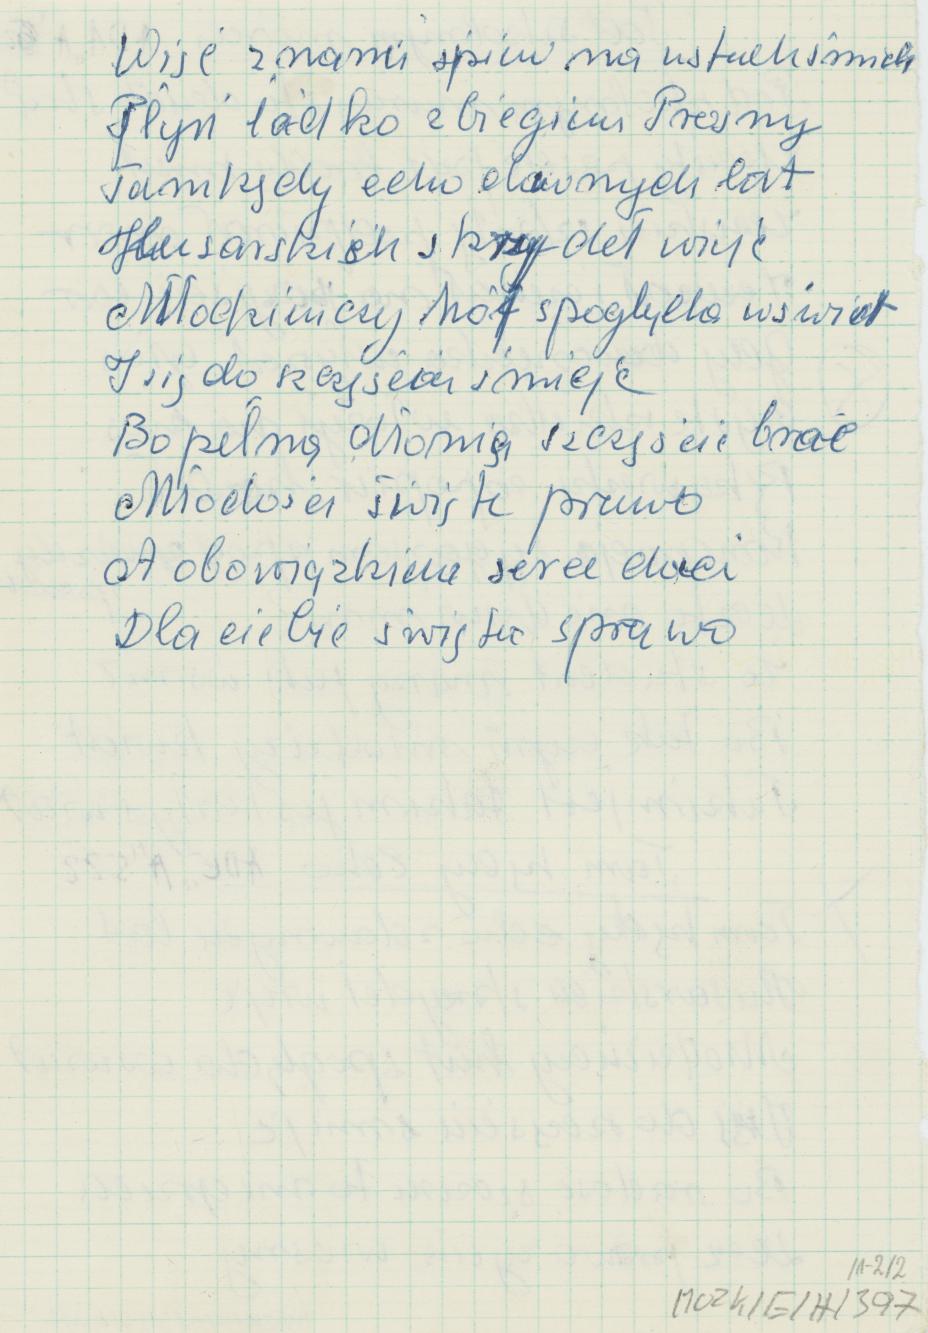 Więc z nami śpiew na ustach śmiech
Płyń łódko z biegiem Prosny
Tam kędy echo dawnych lat
Husarskich skrzydeł wieje
Młodzieńczy hót spogląda w świat
I się do szczęścia śmieje
Bo pełną dłonią szczęście brać
Młodości święte prawo
A obowiązkiem serce dać
Dla ciebie święta sprawo
11-2/2
MOZK/E/H/397